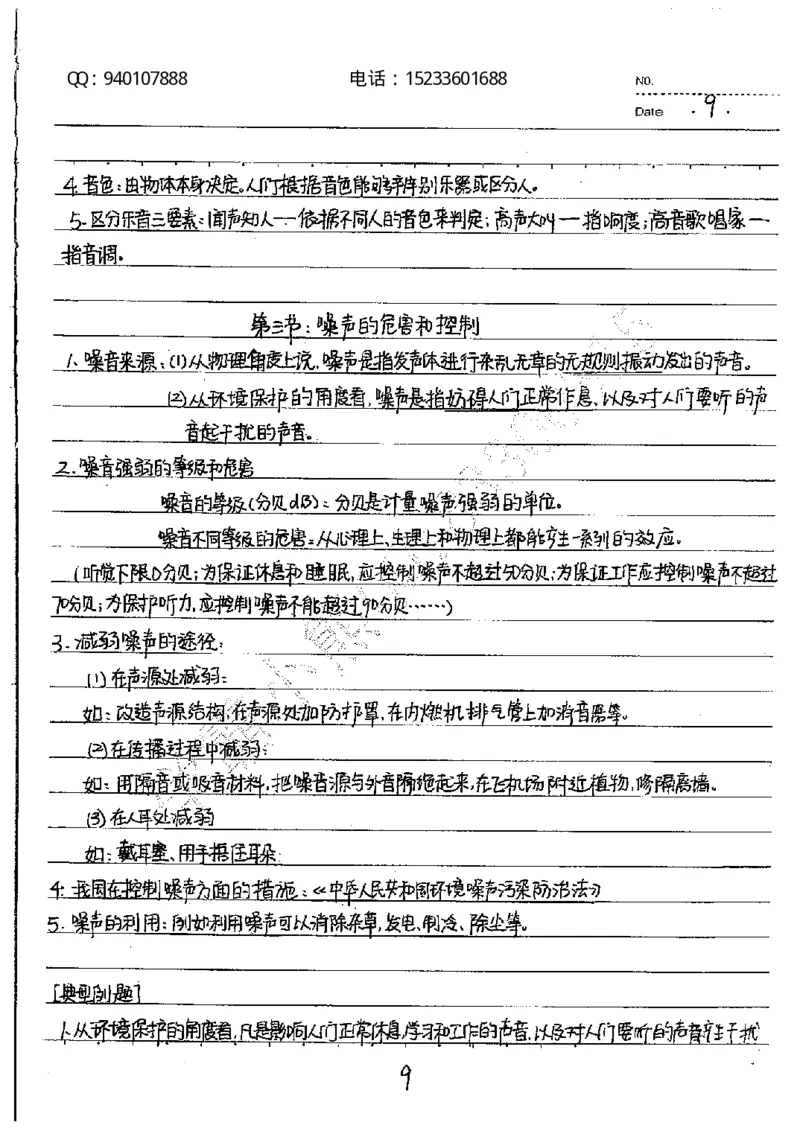 QQ：940107888 电话：15233601688 NO.
Date . 9 .
4.音色：由物体本身决定。人们根据音色能够辨别乐器或区分人。
5.区分乐音三要素：闻声知人——依据不同人的音色来判定；高声大叫——指响度；高音歌唱家——
指音调。
第三节：噪声的危害和控制
1、噪音来源：(1)从物理角度上说，噪声是指发声体进行杂乱无章的无规则振动发出的声音。
(2)从环境保护的角度看，噪声是指妨碍人们正常作息、以及对人们要听的声
音起干扰的声音。
2.噪音强弱的等级和危害
噪音的等级(分贝dB)：分贝是计量噪声强弱的单位。
噪音不同等级的危害：从心理上、生理上和物理上都能产生一系列的效应。
(听觉下限0分贝；为保证休息和睡眠，应控制噪声不超过50分贝；为保证工作应控制噪声不超过
70分贝；为保护听力，应控制噪声不能超过90分贝……)
3.减弱噪声的途径：
(1)在声源处减弱：
如：改造声源结构，在声源处加防护罩，在内燃机排气管上加消音器等。
(2)在传播过程中减弱：
如：用隔音或吸音材料，把噪音源与外音隔绝起来，在飞机场附近植物，修隔离墙。
(3)在人耳处减弱
如：戴耳塞、用手捂住耳朵
4.我国在控制噪声方面的措施：《中华人民共和国环境噪声污染防治法》
5.噪声的利用：例如利用噪声可以消除杂草，发电、制冷、除尘等。
[典型例题]
1.从环境保护的角度看，凡是影响人们正常休息，学习和工作的声音，以及对人们要听的声音产生干扰
9